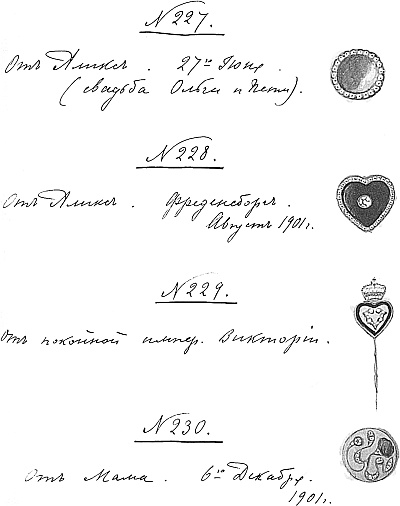 N 227.
Отъ Аликсъ. 27го Июня.
(свадьба Ольги и Пети).
N 228.
Отъ Аликсъ. Фреденсборгъ.
Августъ 1901 г.
N 229.
Отъ покойной импер. Викторіи.
N 230.
Отъ Мама. 6го Декабря.
1901 г.